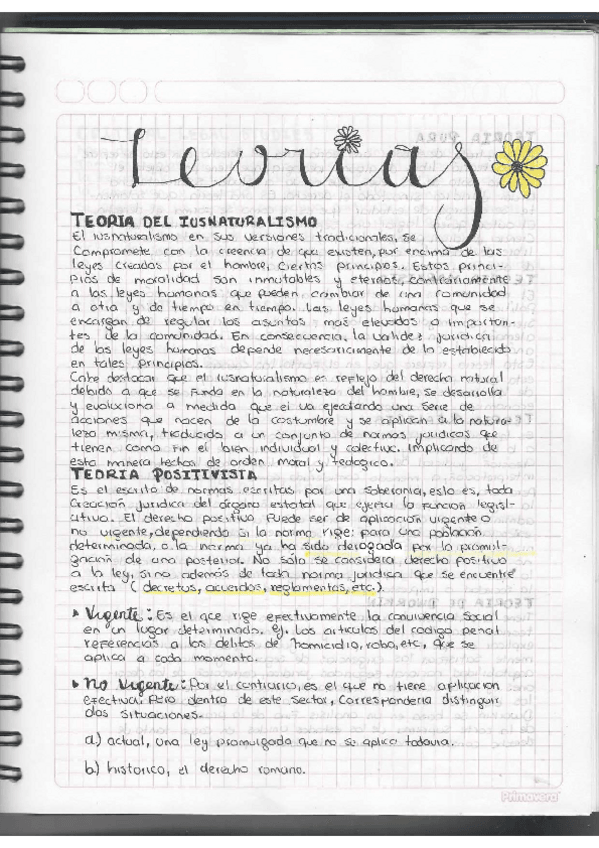 Teorias
TEORIA DEL IUSNATURALISMO
El iusnaturalismo en sus versiones tradicionales, se
compromete con la creencia de que existen, por encima de las
leyes creadas por el hombre, ciertos principios. Estos princi-
pios de moralidad son inmutables y eternos, contrariamente
a las leyes humanas que pueden cambiar de una comunidad
a otra y de tiempo en tiempo. Las leyes humanas que se
encargan de regular los asuntos más elevados o importan-
tes de la comunidad. En consecuencia, la validez jurídica
de las leyes humanas depende necesariamente de lo establecido
en tales principios.
Cabe destacar que el iusnaturalismo es reflejo del derecho natural
debido a que se funda en la naturaleza del hombre, se desarrolla
y evoluciona a medida que el va ejecutando una serie de
acciones que nacen de la costumbre y se aplican a la natura-
leza misma, traducido a un conjunto de normas jurídicas que
tienen como fin el bien individual y colectivo. Implicando de
esta manera techos de orden moral y teologico.
TEORIA POSITIVISTA
Es el escrito de normas escritas por una soberania, esto es, toda
creación jurídica del órgano estatal que ejerza la función legisl-
ativa. El derecho positivo puede ser de aplicación urgente o
no urgente, dependiendo si la norma rige: para una población
determinada, o la norma ya ha sido derogada por la promul-
gación de una posterior. No sólo se considera derecho positivo
a la ley, sino además de toda norma jurídica que se encuentre
escrita (decretos, acuerdos, reglamentos, etc.).
Vigente: Es el que rige efectivamente la convivencia social
en un lugar determinado. ej. los articulos del codigo penal
referencias a los delitos de homicidio, robo, etc, que se
aplica a cada momento.
No Vigente: Por el contrario, es el que no tiene aplicacion
efectiva. Pero dentro de este sector, Corresponderia distinguir
dos situaciones.
a) actual, una ley promulgada que no se aplica todavia.
b) historico, el derecho romano.
Primavera